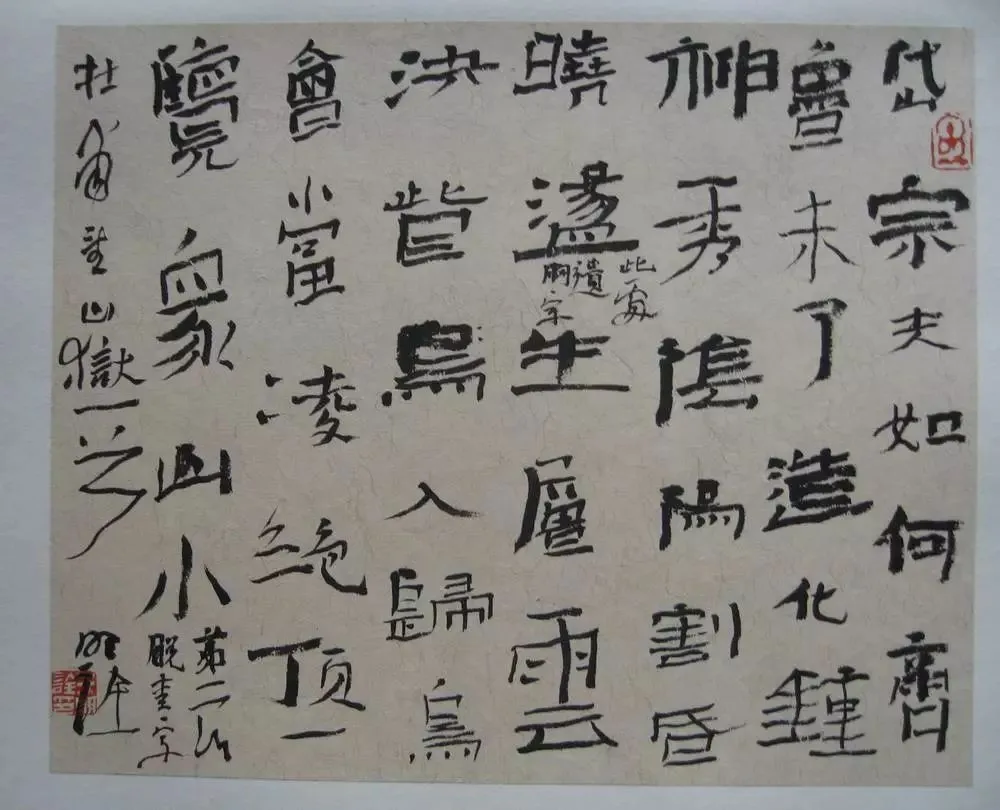 岱宗夫如何齊
魯未了造化鍾
神秀陰陽割昏
曉盪生層雲
此處
遺
胸字
決眥鳥入歸鳥
會當凌絕頂一
覽眾山小
第二行
脫青字
杜甫望山嶽一首
明詮